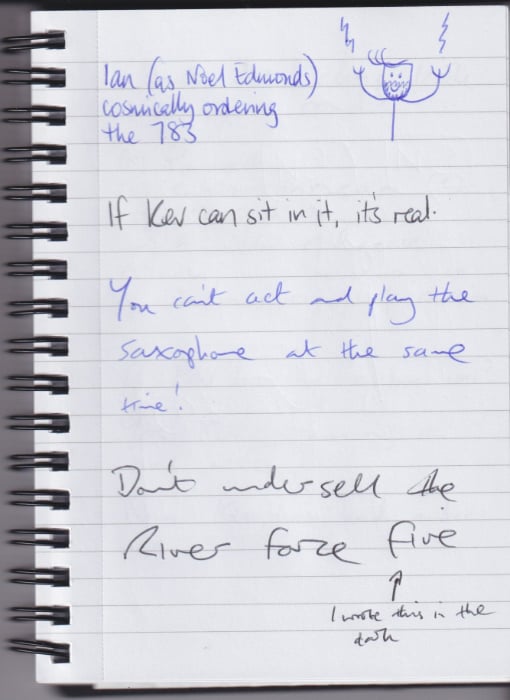 Ian (as Noel Edmonds)
cosmically ordering
the 783
If Kev can sit in it, it's real.
You can't act and play the
saxophone at the same
time!
Don't undersell the
River force five
I wrote this in the
dark